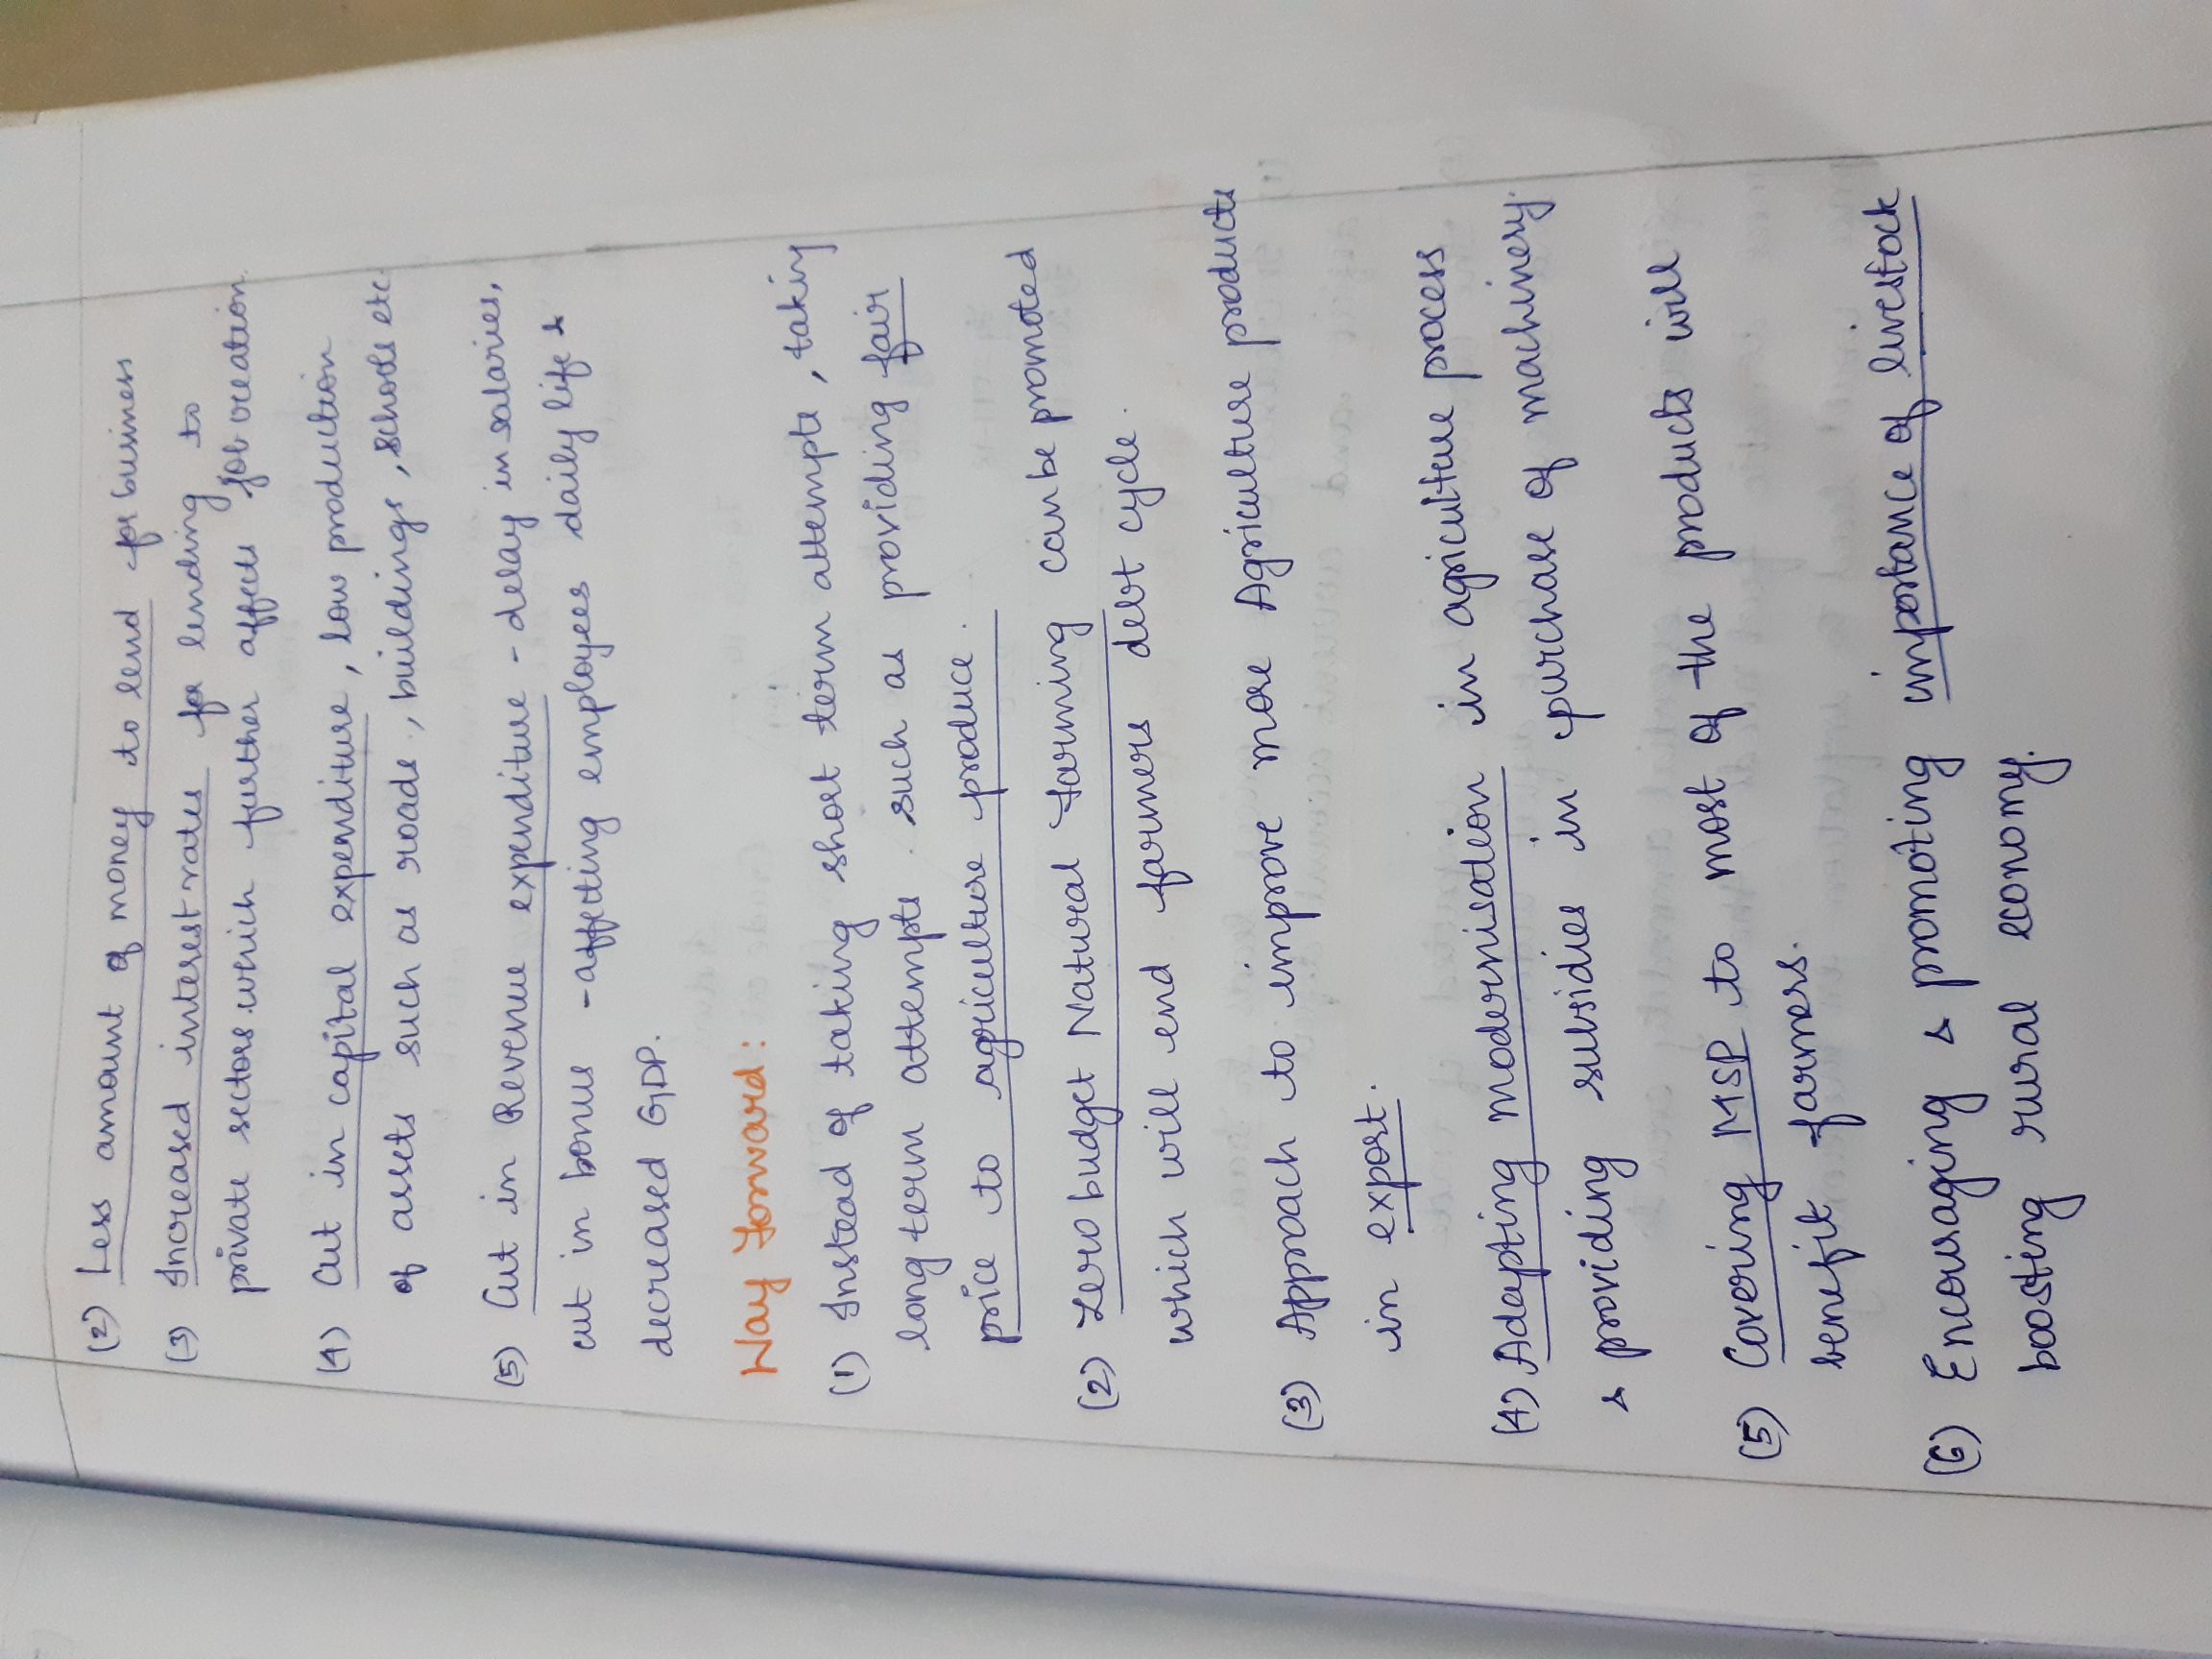 (2) Less amount of money to lend for business
(3) Increased interest rates for lending to
private sectors which further affects job creation.
(4) Cut in capital expenditure, low production
of assets such as roads, buildings, schools etc.
(5) Cut in Revenue expenditure - delay in salaries,
cut in bonus - affecting employees daily life &
decreased GDP.
Way Forward:
(1) Instead of taking short term attempts, taking
long term attempts such as providing fair
price to agriculture produce.
(2) Zero budget Natural Farming can be promoted
which will end farmers debt cycle.
(3) Approach to improve more Agriculture products
in export.
(4) Adapting modernisation in agriculture process
& providing subsidies in purchase of machinery.
(5) Covering MSP to most of the products will
benefit farmers.
(6) Encouraging & promoting importance of livestock
boosting rural economy.